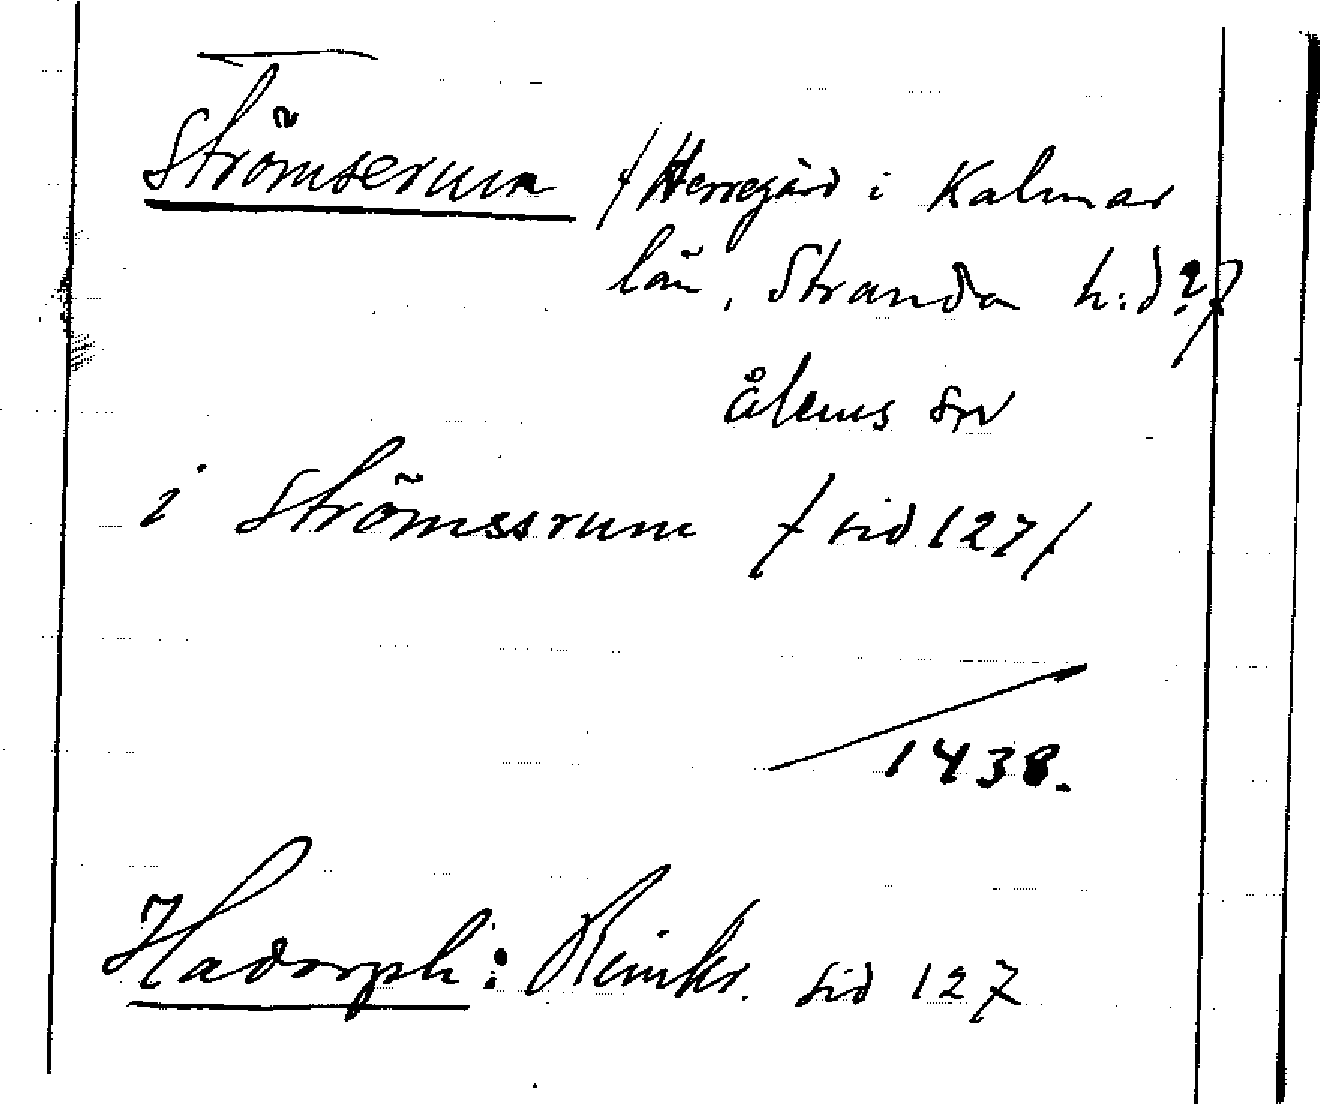 Strömserum /Herregård i Kalmar
län, Stranda h:d?/
Ålems sn
i Strömssrum /sid 127/
1438.
Hadorph: Rimkr. sid 127